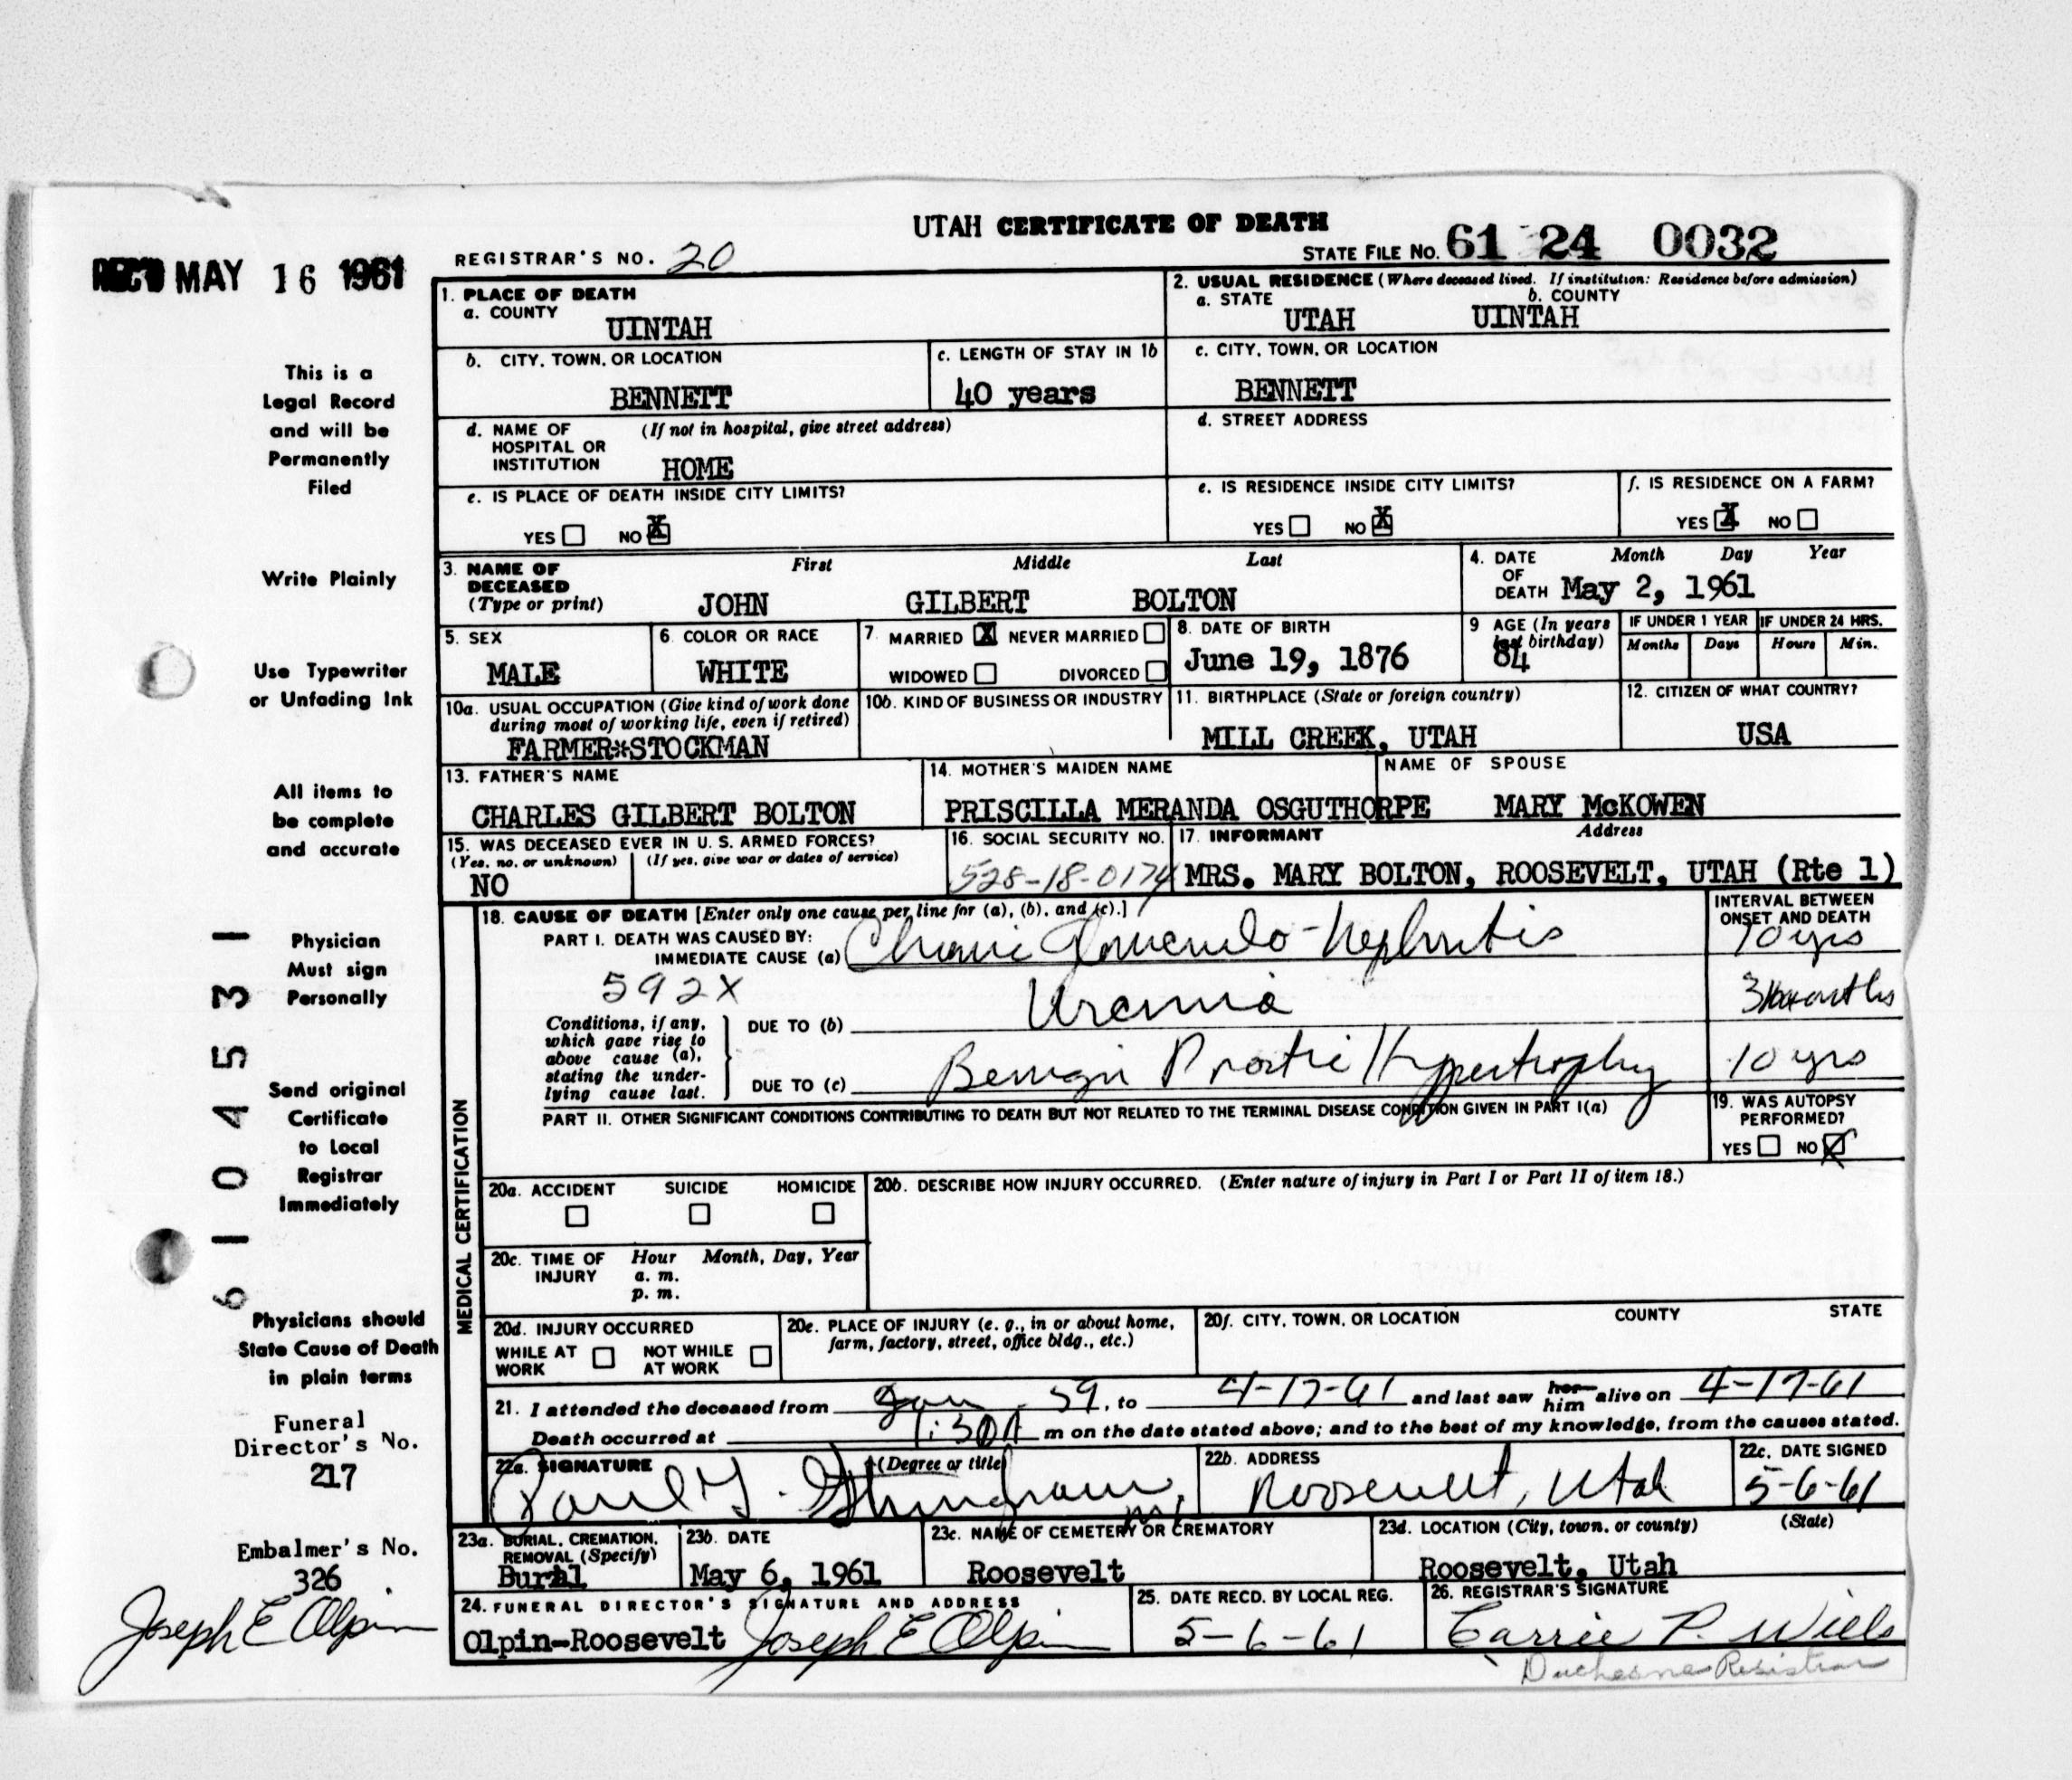 UTAH CERTIFICATE OF DEATH
REC'D MAY 16 1961
REGISTRAR'S NO. 20
STATE FILE NO. 61 24 0032
1. PLACE OF DEATH
a. COUNTY
UINTAH
2. USUAL RESIDENCE (Where deceased lived. If institution: Residence before admission)
a. STATE b. COUNTY
UTAH UINTAH
b. CITY, TOWN, OR LOCATION
BENNETT
c. LENGTH OF STAY IN 1b
40 years
c. CITY, TOWN, OR LOCATION
BENNETT
d. NAME OF (If not in hospital, give street address)
HOSPITAL OR
INSTITUTION HOME
d. STREET ADDRESS
e. IS PLACE OF DEATH INSIDE CITY LIMITS?
YES NO X
e. IS RESIDENCE INSIDE CITY LIMITS?
YES NO X
f. IS RESIDENCE ON A FARM?
YES X NO
3. NAME OF DECEASED First Middle Last
(Type or print) JOHN GILBERT BOLTON
4. DATE OF DEATH Month Day Year
May 2, 1961
5. SEX
MALE
6. COLOR OR RACE
WHITE
7. MARRIED X NEVER MARRIED
WIDOWED DIVORCED
8. DATE OF BIRTH
June 19, 1876
9 AGE (In years last birthday)
84
IF UNDER 1 YEAR
Months Days
IF UNDER 24 HRS.
Hours Min.
10a. USUAL OCCUPATION (Give kind of work done
during most of working life, even if retired)
FARMER*STOCKMAN
10b. KIND OF BUSINESS OR INDUSTRY
11. BIRTHPLACE (State or foreign country)
MILL CREEK, UTAH
12. CITIZEN OF WHAT COUNTRY?
USA
13. FATHER'S NAME
CHARLES GILBERT BOLTON
14. MOTHER'S MAIDEN NAME
PRISCILLA MERANDA OSGUTHORPE
NAME OF SPOUSE
MARY McKOWEN
15. WAS DECEASED EVER IN U. S. ARMED FORCES?
(Yes, no, or unknown) (If yes, give war or dates of service)
NO
16. SOCIAL SECURITY NO.
528-18-0174
17. INFORMANT Address
MRS. MARY BOLTON, ROOSEVELT, UTAH (Rte 1)
MEDICAL CERTIFICATION
18. CAUSE OF DEATH [Enter only one cause per line for (a), (b), and (c).]
INTERVAL BETWEEN
ONSET AND DEATH
PART I. DEATH WAS CAUSED BY:
IMMEDIATE CAUSE (a) Chronic Glomerulo-Nephritis 10 yrs
592X
Conditions, if any,
which gave rise to
above cause (a),
stating the under-
lying cause last.
DUE TO (b) Uremia 3 months
DUE TO (c) Benign Prostic Hypertrophy 10 yrs
PART II. OTHER SIGNIFICANT CONDITIONS CONTRIBUTING TO DEATH BUT NOT RELATED TO THE TERMINAL DISEASE CONDITION GIVEN IN PART I(a)
19. WAS AUTOPSY
PERFORMED?
YES NO X
20a. ACCIDENT SUICIDE HOMICIDE
20b. DESCRIBE HOW INJURY OCCURRED. (Enter nature of injury in Part I or Part II of item 18.)
20c. TIME OF INJURY Hour Month, Day, Year
a. m.
p. m.
20d. INJURY OCCURRED
WHILE AT WORK NOT WHILE AT WORK
20e. PLACE OF INJURY (e. g., in or about home,
farm, factory, street, office bldg., etc.)
20f. CITY, TOWN, OR LOCATION COUNTY STATE
21. I attended the deceased from Jan 59, to 4-17-61 and last saw her him alive on 4-17-61
Death occurred at 1:30A m on the date stated above; and to the best of my knowledge, from the causes stated.
22a. SIGNATURE (Degree or title)
Paul G.
22b. ADDRESS
Roosevelt, Utah
22c. DATE SIGNED
5-6-61
23a. BURIAL, CREMATION,
REMOVAL (Specify)
Burial
23b. DATE
May 6, 1961
23c. NAME OF CEMETERY OR CREMATORY
Roosevelt
23d. LOCATION (City, town, or county) (State)
Roosevelt, Utah
24. FUNERAL DIRECTOR'S SIGNATURE AND ADDRESS
Olpin-Roosevelt Joseph E Olpin
25. DATE RECD. BY LOCAL REG.
5-6-61
26. REGISTRAR'S SIGNATURE
Carrie P.
Duchesne Registrar
This is a
Legal Record
and will be
Permanently
Filed
Write Plainly
Use Typewriter
or Unfading Ink
All items to
be complete
and accurate
Physician
Must sign
Personally
Send original
Certificate
to Local
Registrar
Immediately
Physicians should
State Cause of Death
in plain terms
Funeral
Director's No.
217
Embalmer's No.
326
Joseph E Olpin
61 04531